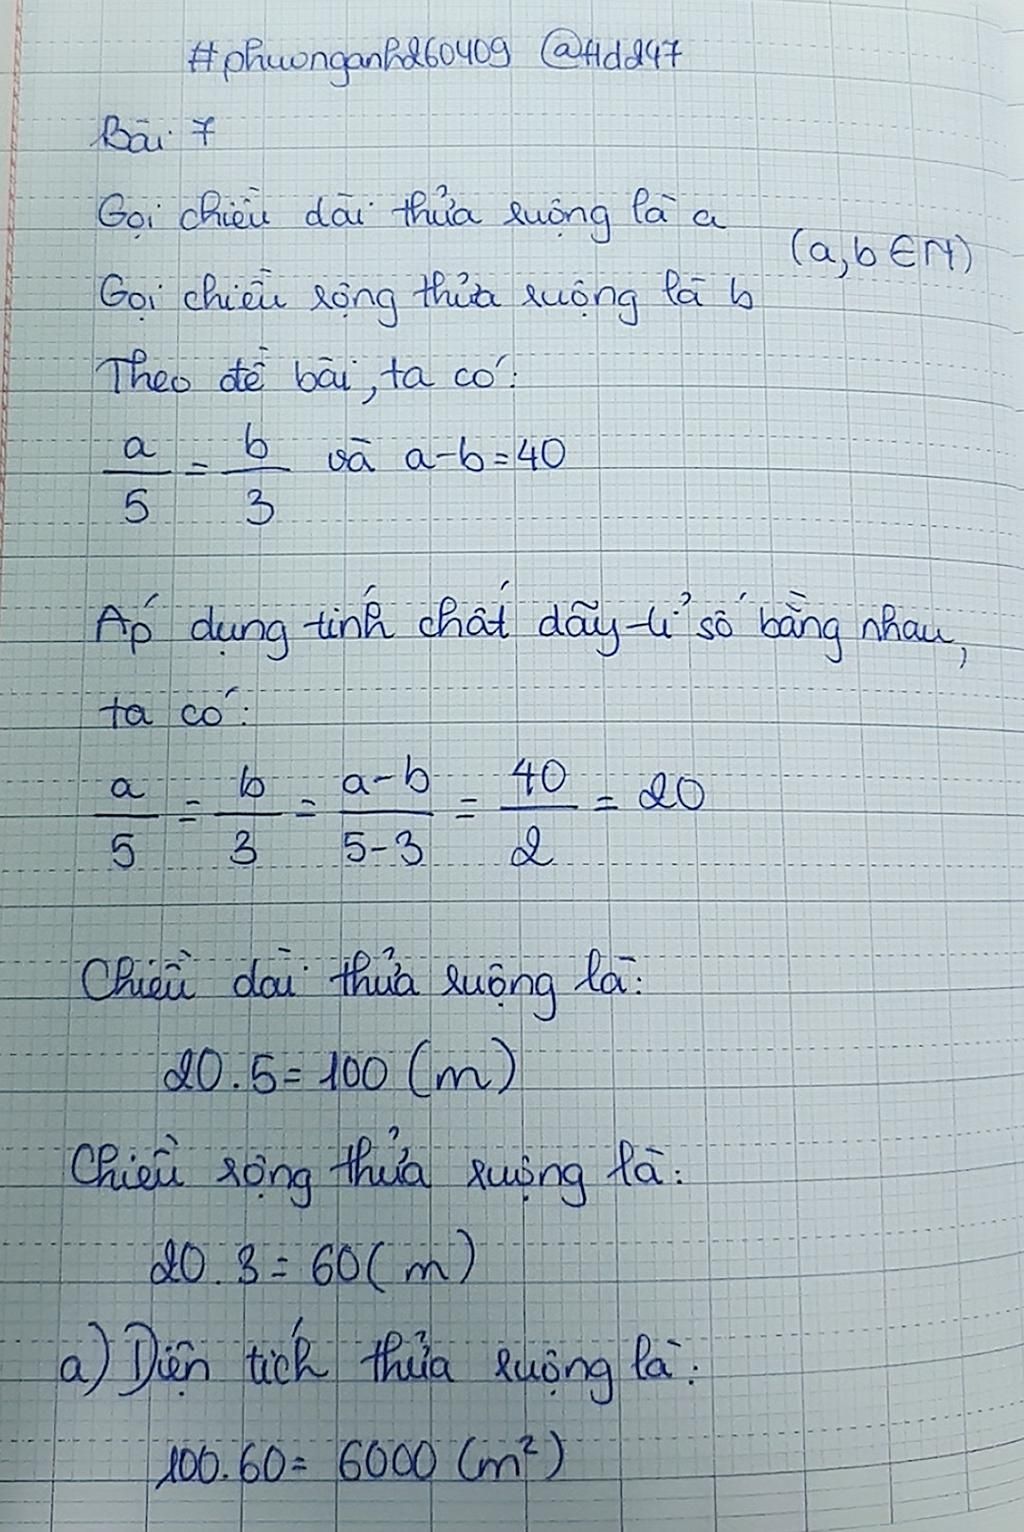 #phuonganh260409 @Hdd247
Bài 7
Gọi chiều dài thửa ruộng là a
(a,b ∈ N)
Gọi chiều rộng thửa ruộng là b
Theo đề bài, ta có:
a/5 = b/3 và a-b=40
Áp dụng tính chất dãy tỉ số bằng nhau,
ta có:
a/5 = b/3 = (a-b)/(5-3) = 40/2 = 20
Chiều dài thửa ruộng là:
20.5=100 (m)
Chiều rộng thửa ruộng là:
20.3=60(m)
a) Diện tích thửa ruộng là:
100.60= 6000 (m²)